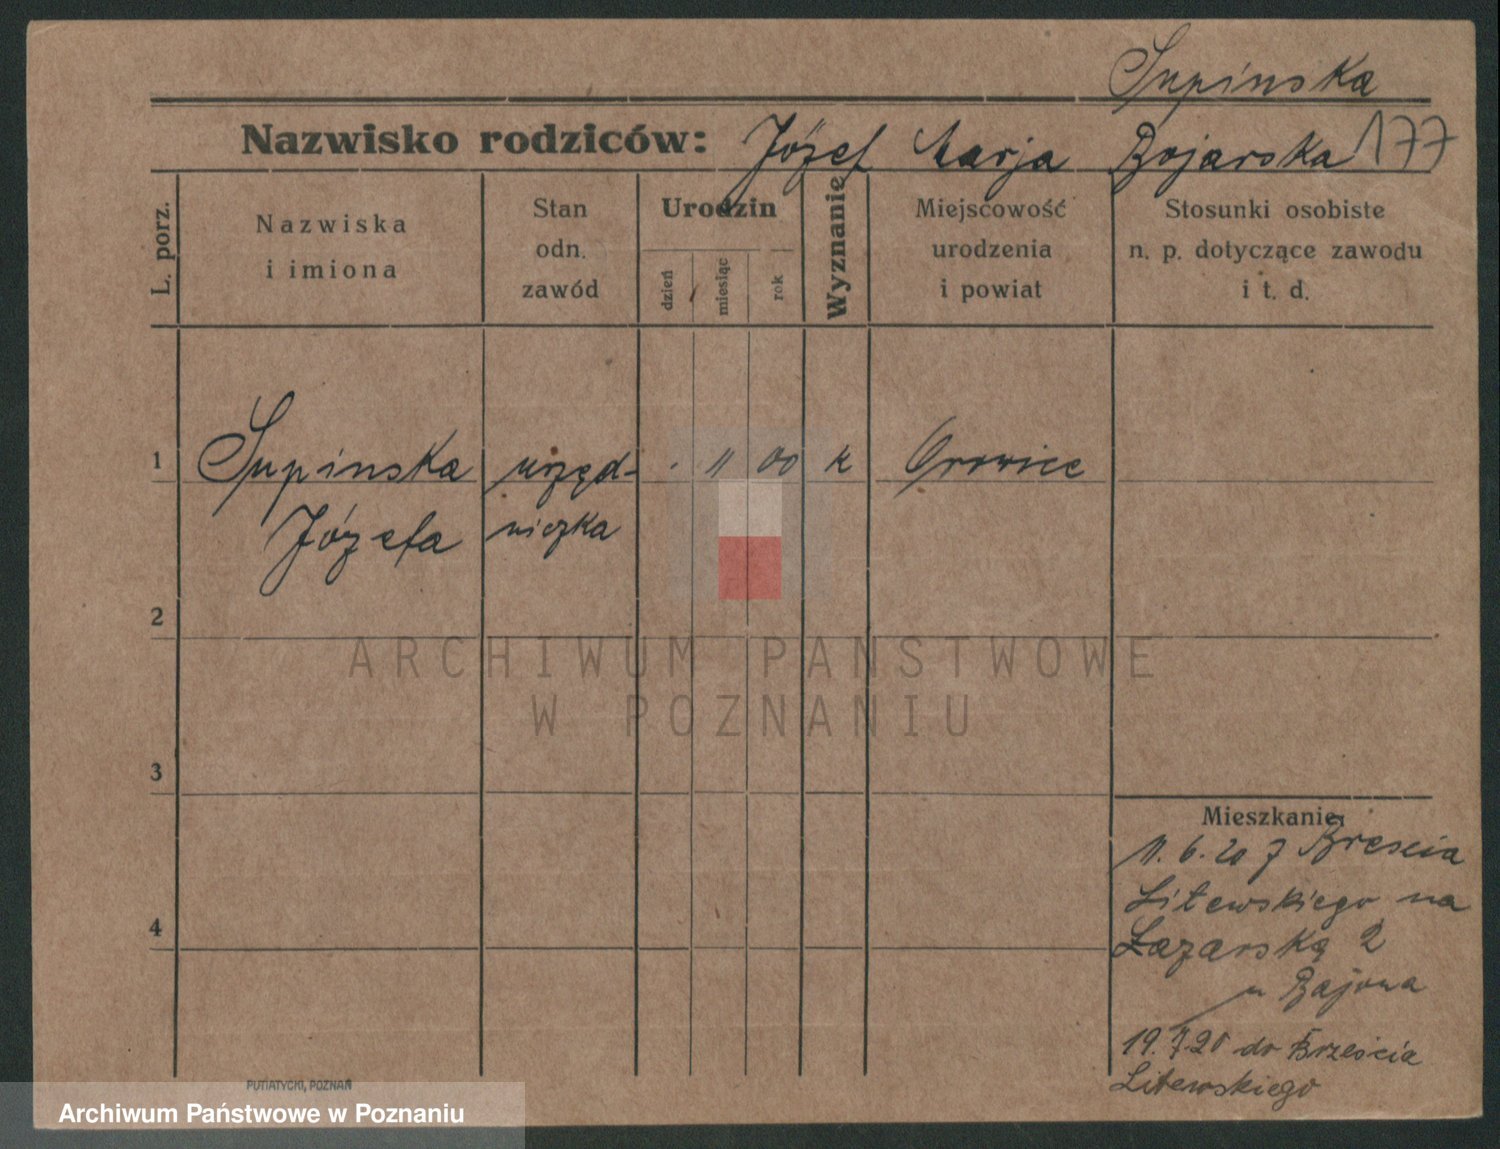 Supinska
Nazwisko rodziców: Józef Marja Bojarska 177
L. porz.
Nazwiska
i imiona
Stan
odn.
zawód
Urodzin
dzień
miesiąc
rok
Wyznanie
Miejscowość
urodzenia
i powiat
Stosunki osobiste
n. p. dotyczące zawodu
i t. d.
1 Supinska urzęd- . 11 00 k
Józefa niczka
2
ARCHIWUM PAŃSTWOWE
W POZNANIU
3
Mieszkanie:
11.6.20 z Brescia
Litewskiego na
Łazarską 2
u Bajona
4
19.7.20 do Brześcia
Litewskiego
PUTIATYCKI, POZNAŃ
Archiwum Państwowe w Poznaniu